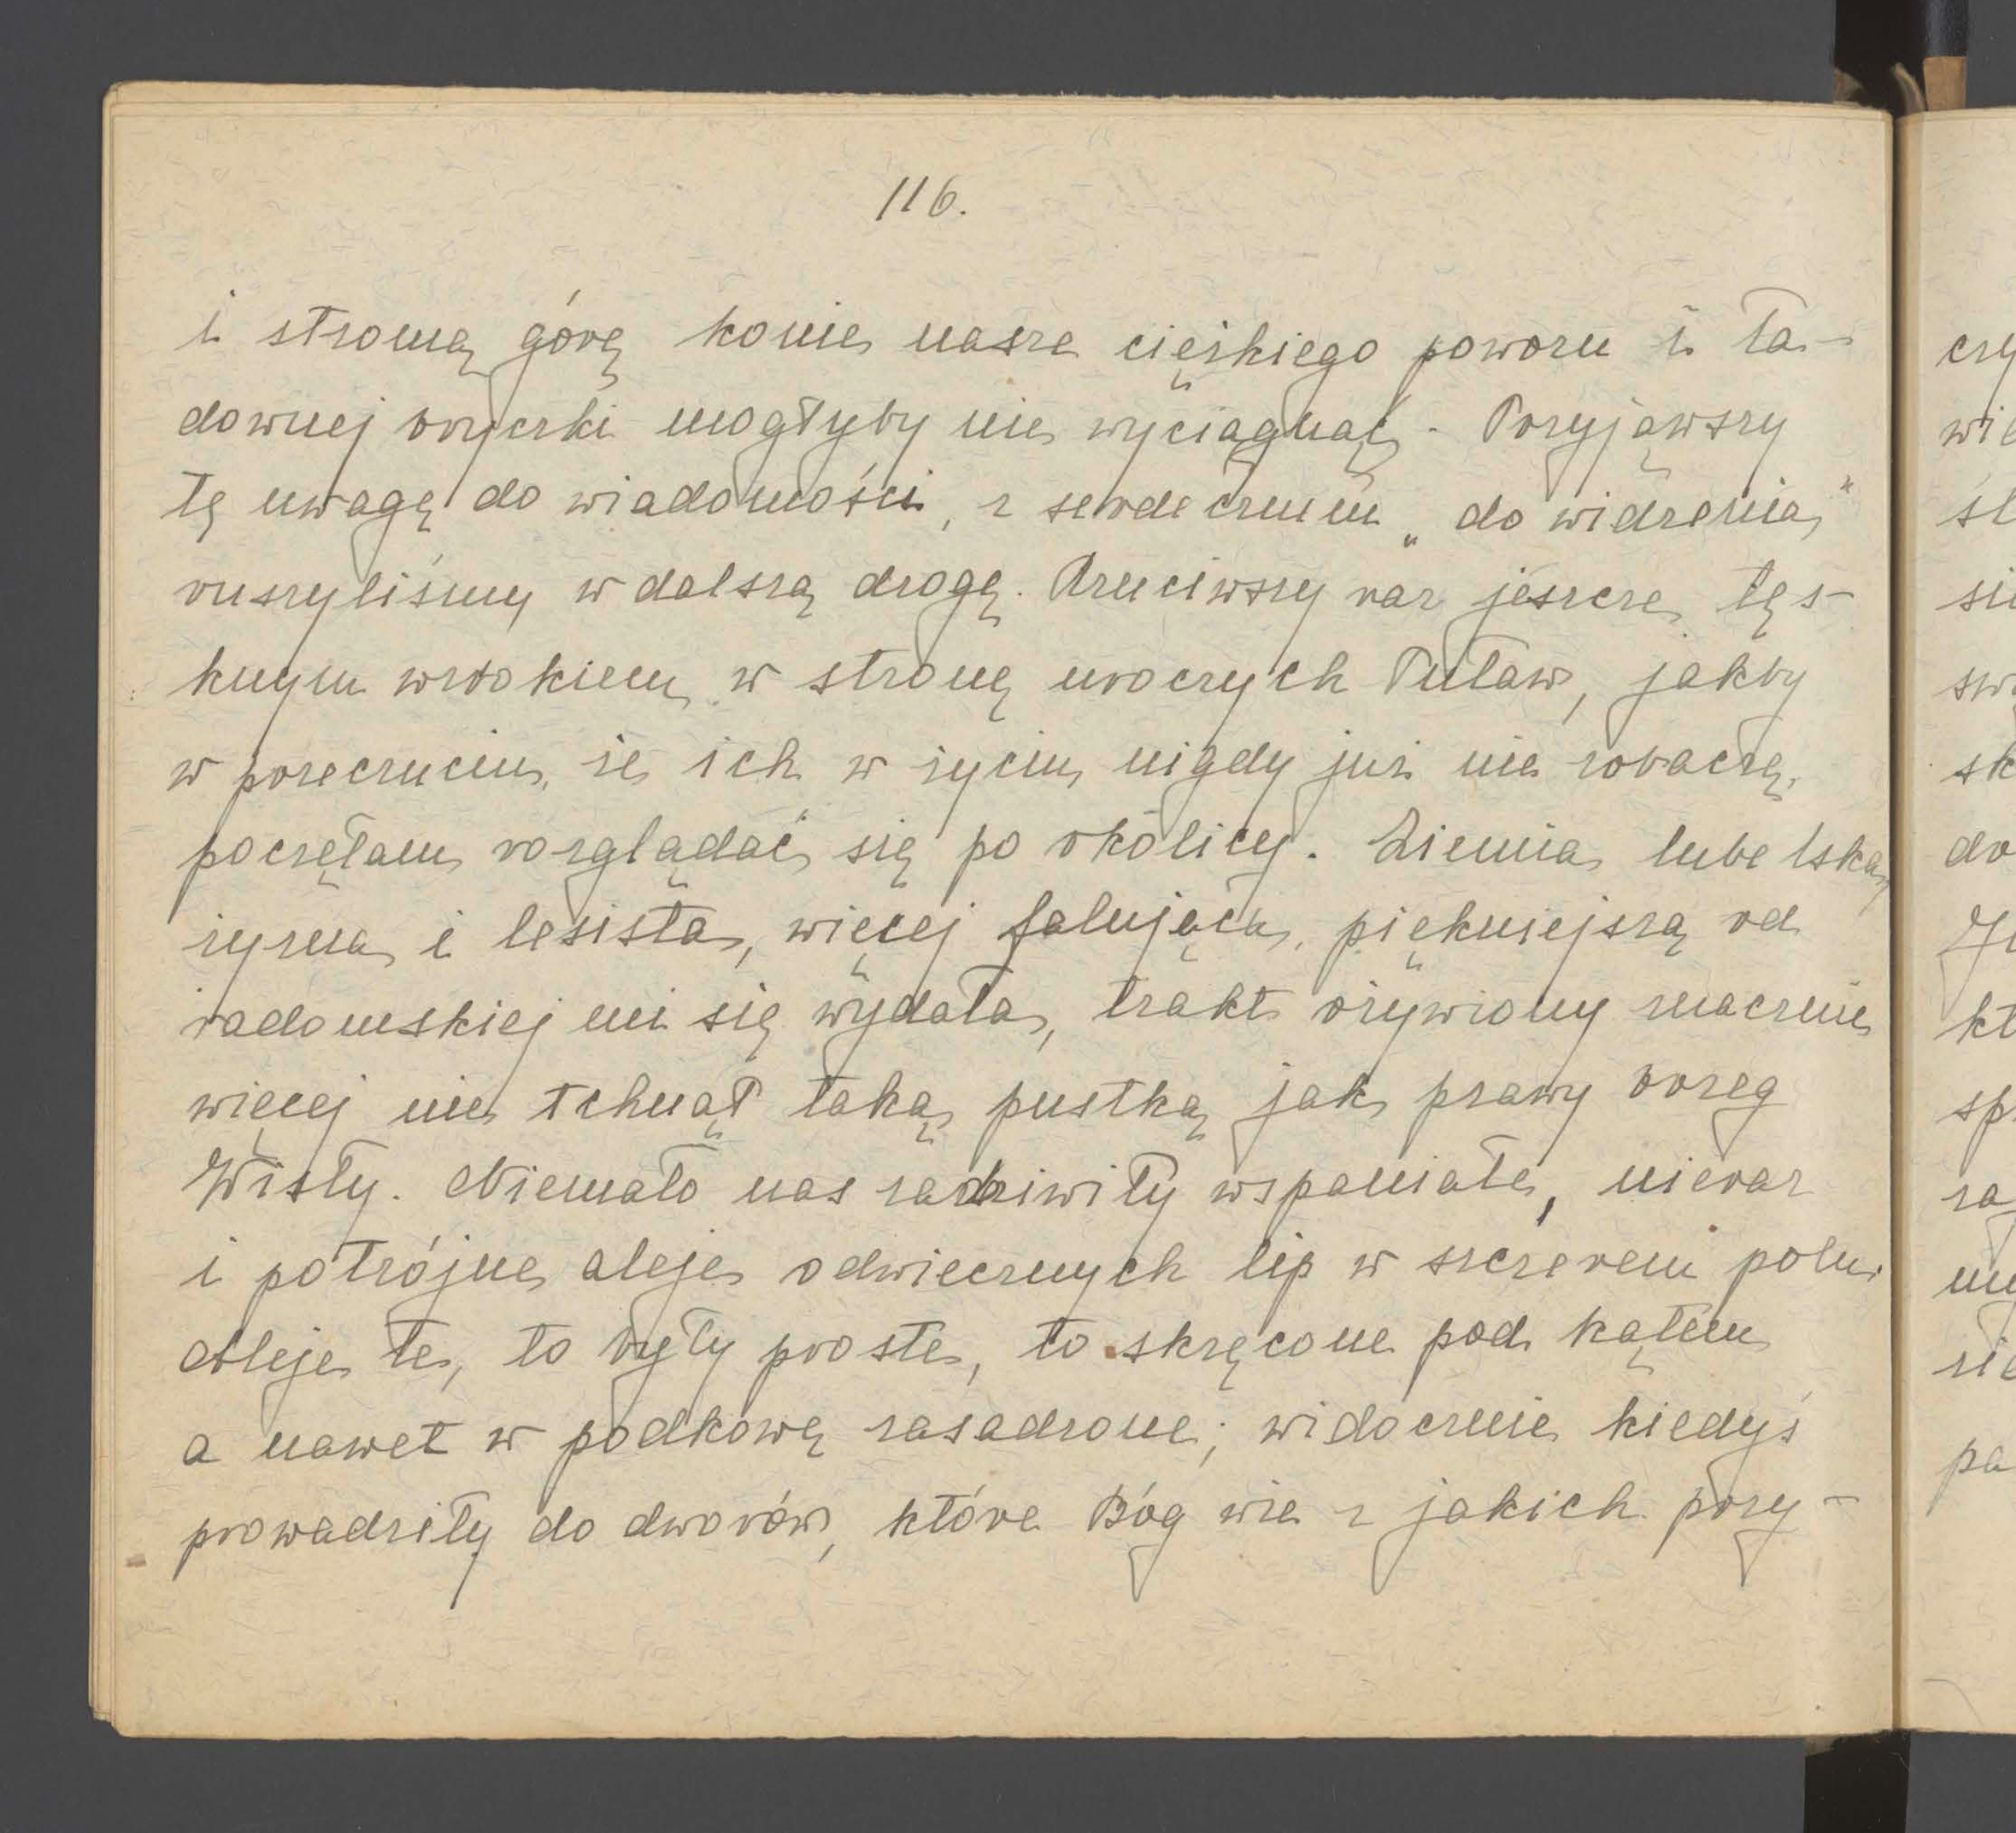 116.
i stromą górę konie nasze ciężkiego powozu i ła-
downej bryczki mogłyby nie wyciągnąć. Przyjąwszy
tę uwagę do wiadomości, z serdecznem „do widzenia"
ruszyliśmy w dalszą drogę. Rzuciwszy raz jeszcze tęs-
knym wzrokiem w stronę uroczych Puław, jakby
w przeczuciu, że ich w życiu nigdy już nie zobaczę,
poczęłam rozglądać się po okolicy. Ziemia lubelska,
żyzna i lesista, więcej falująca, piękniejszą od
radomskiej mi się wydała, trakt ożywiony znacznie
więcej nie tchnął taką pustką jak prawy brzeg
Wisły. Niemało nas zadziwiły wspaniałe, nieraz
i potrójne aleje odwiecznych lip w szczerem polu.
Aleje te, to były proste, to skręcone pod kątem
a nawet w podkowę zasadzone; widocznie kiedyś
prowadziły do dworów, które Bóg wie z jakich przy-
czy
wie
sk
do
kt
pa